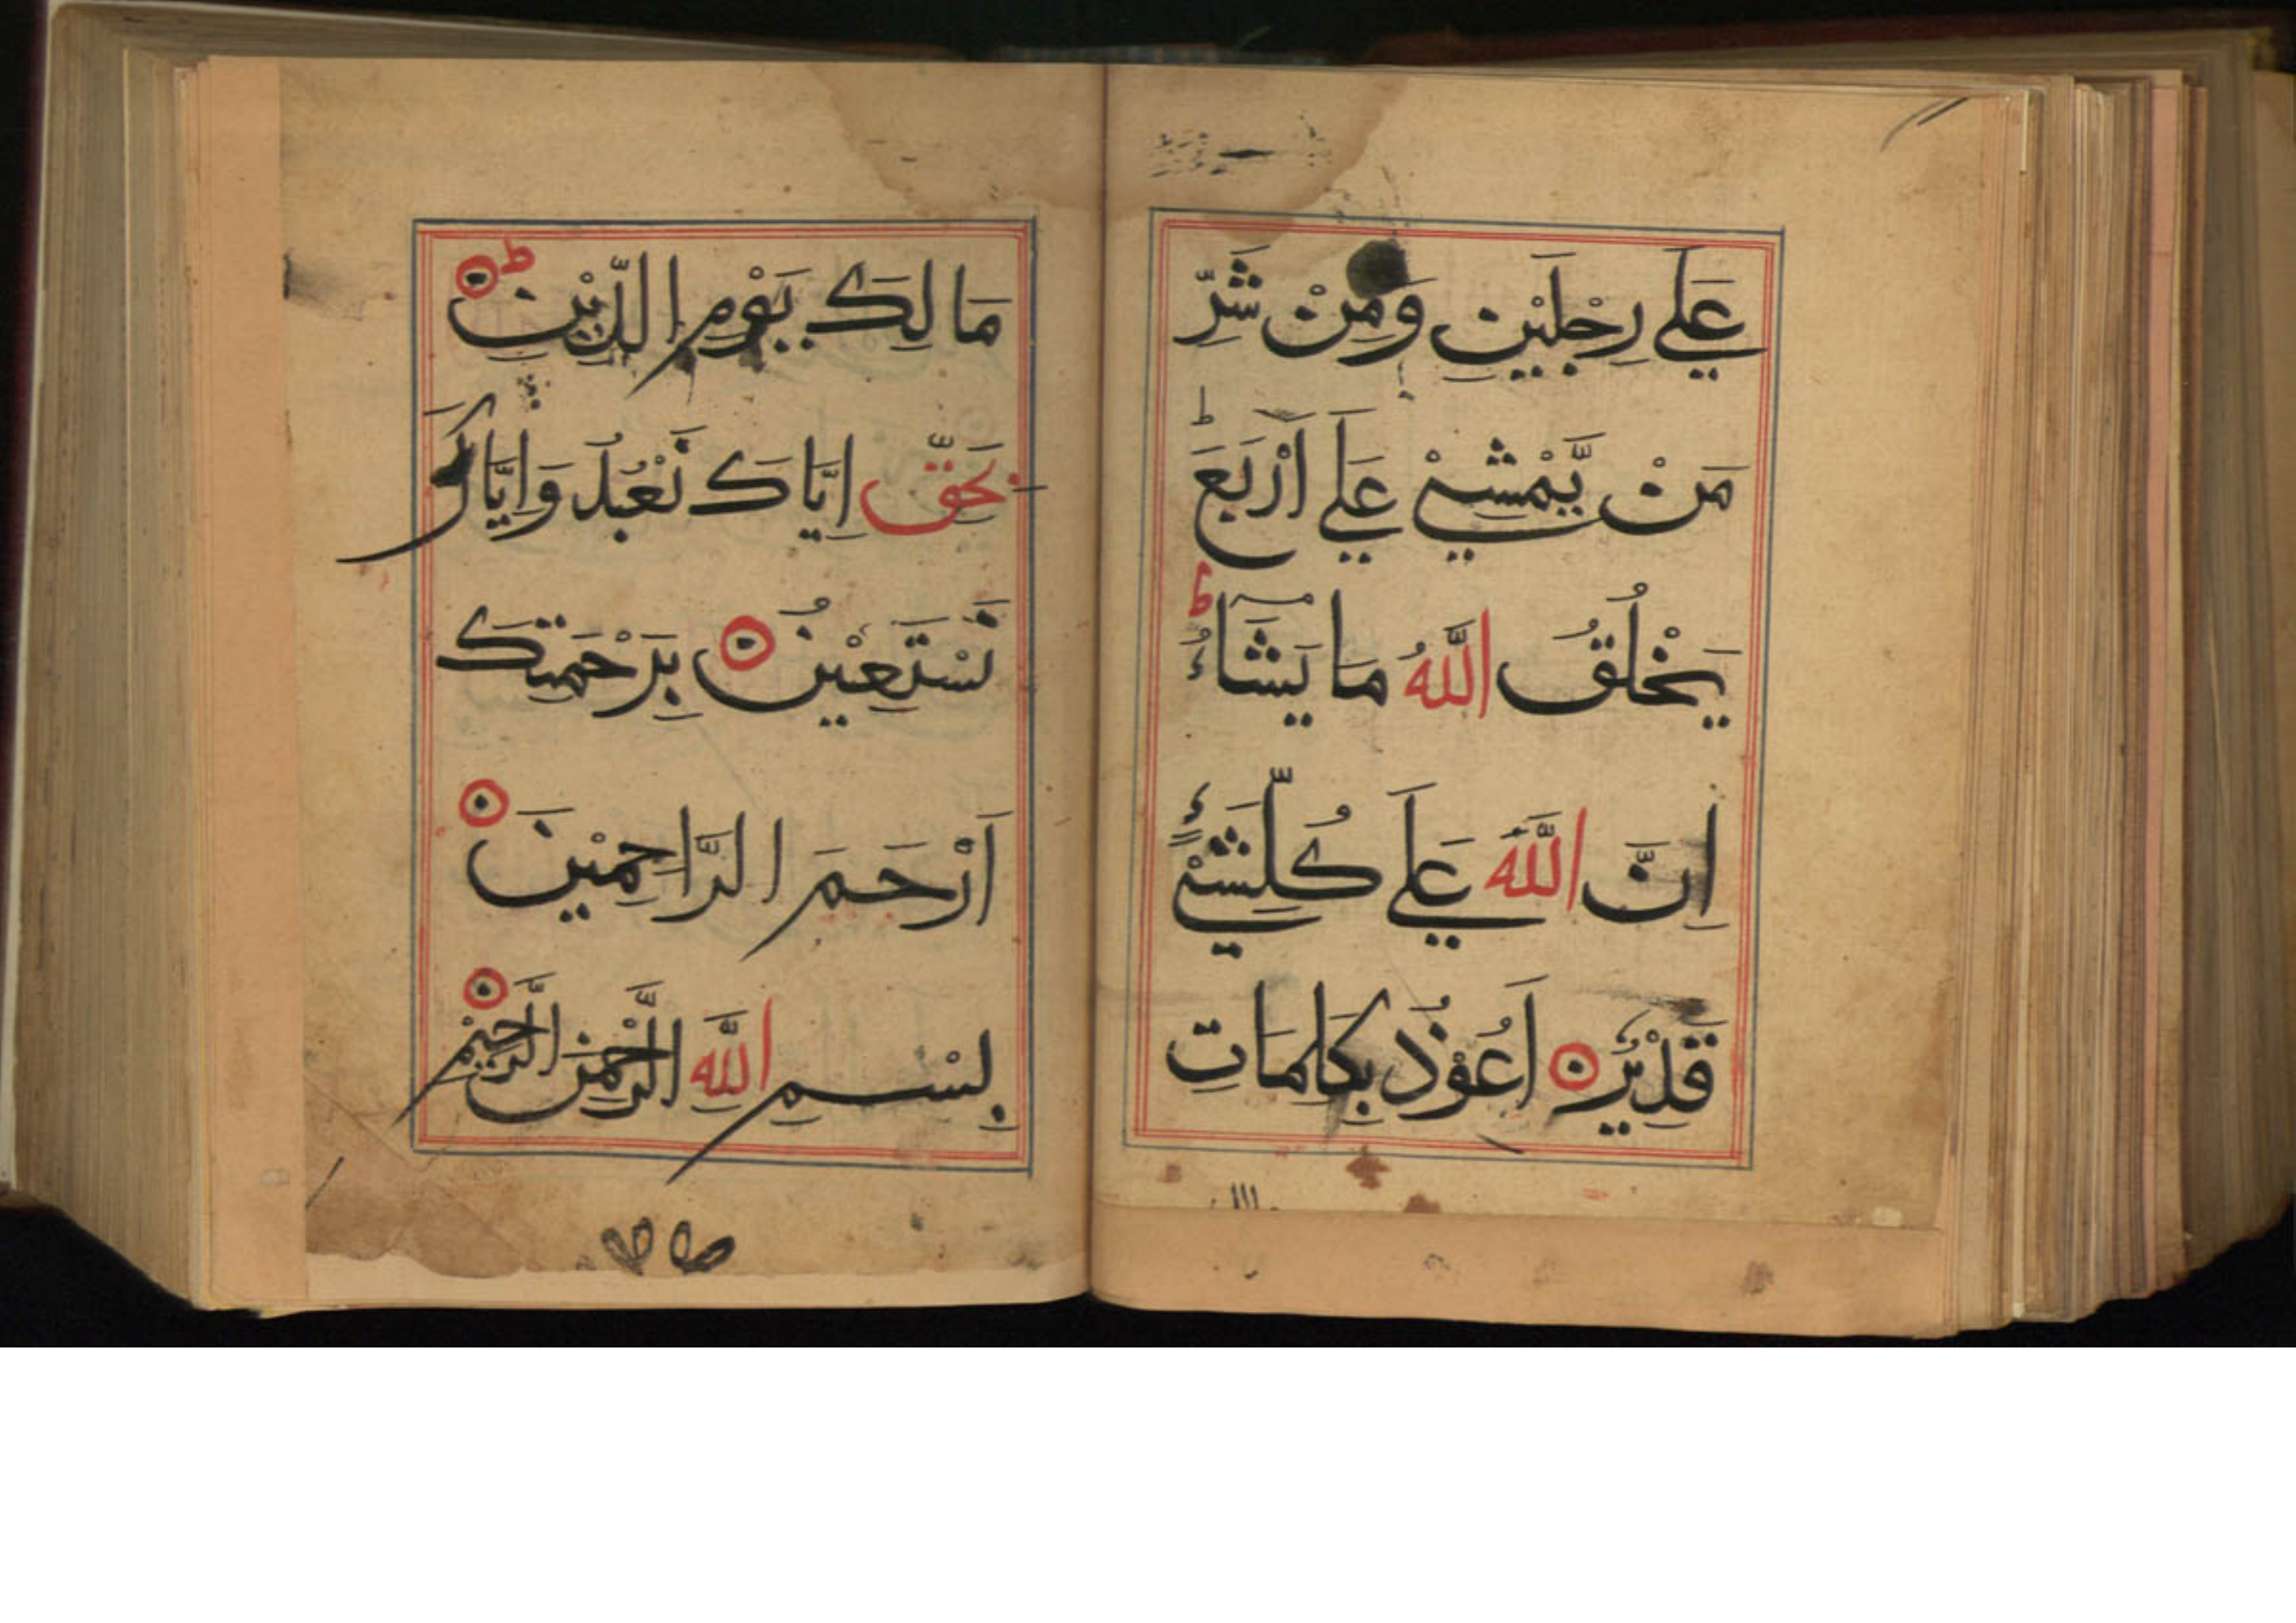 عَلٰي رِجْلَيْنِ وَمِنْ شَرِّ
مَنْ يَّمْشِيْ عَلٰي اَرْبَعَ ط
يَخْلُقُ اللّٰهُ مَا يَشَآءُ ط
اِنَّ اللّٰهَ عَلٰي كُلِّ شَيْءٍ
قَدِيْرٌ اَعُوْذُ بِكَلِمَاتِ
مَالِكِ يَوْمِ الدِّيْنِ ط
بَحَقِّ اِيَّاكَ نَعْبُدُ وَاِيَّاكَ
نَسْتَعِيْنُ بِرَحْمَتِكَ
اَرْحَمَ الرَّاحِمِيْنَ
بِسْمِ اللّٰهِ الرَّحْمٰنِ الرَّحِيْمِ